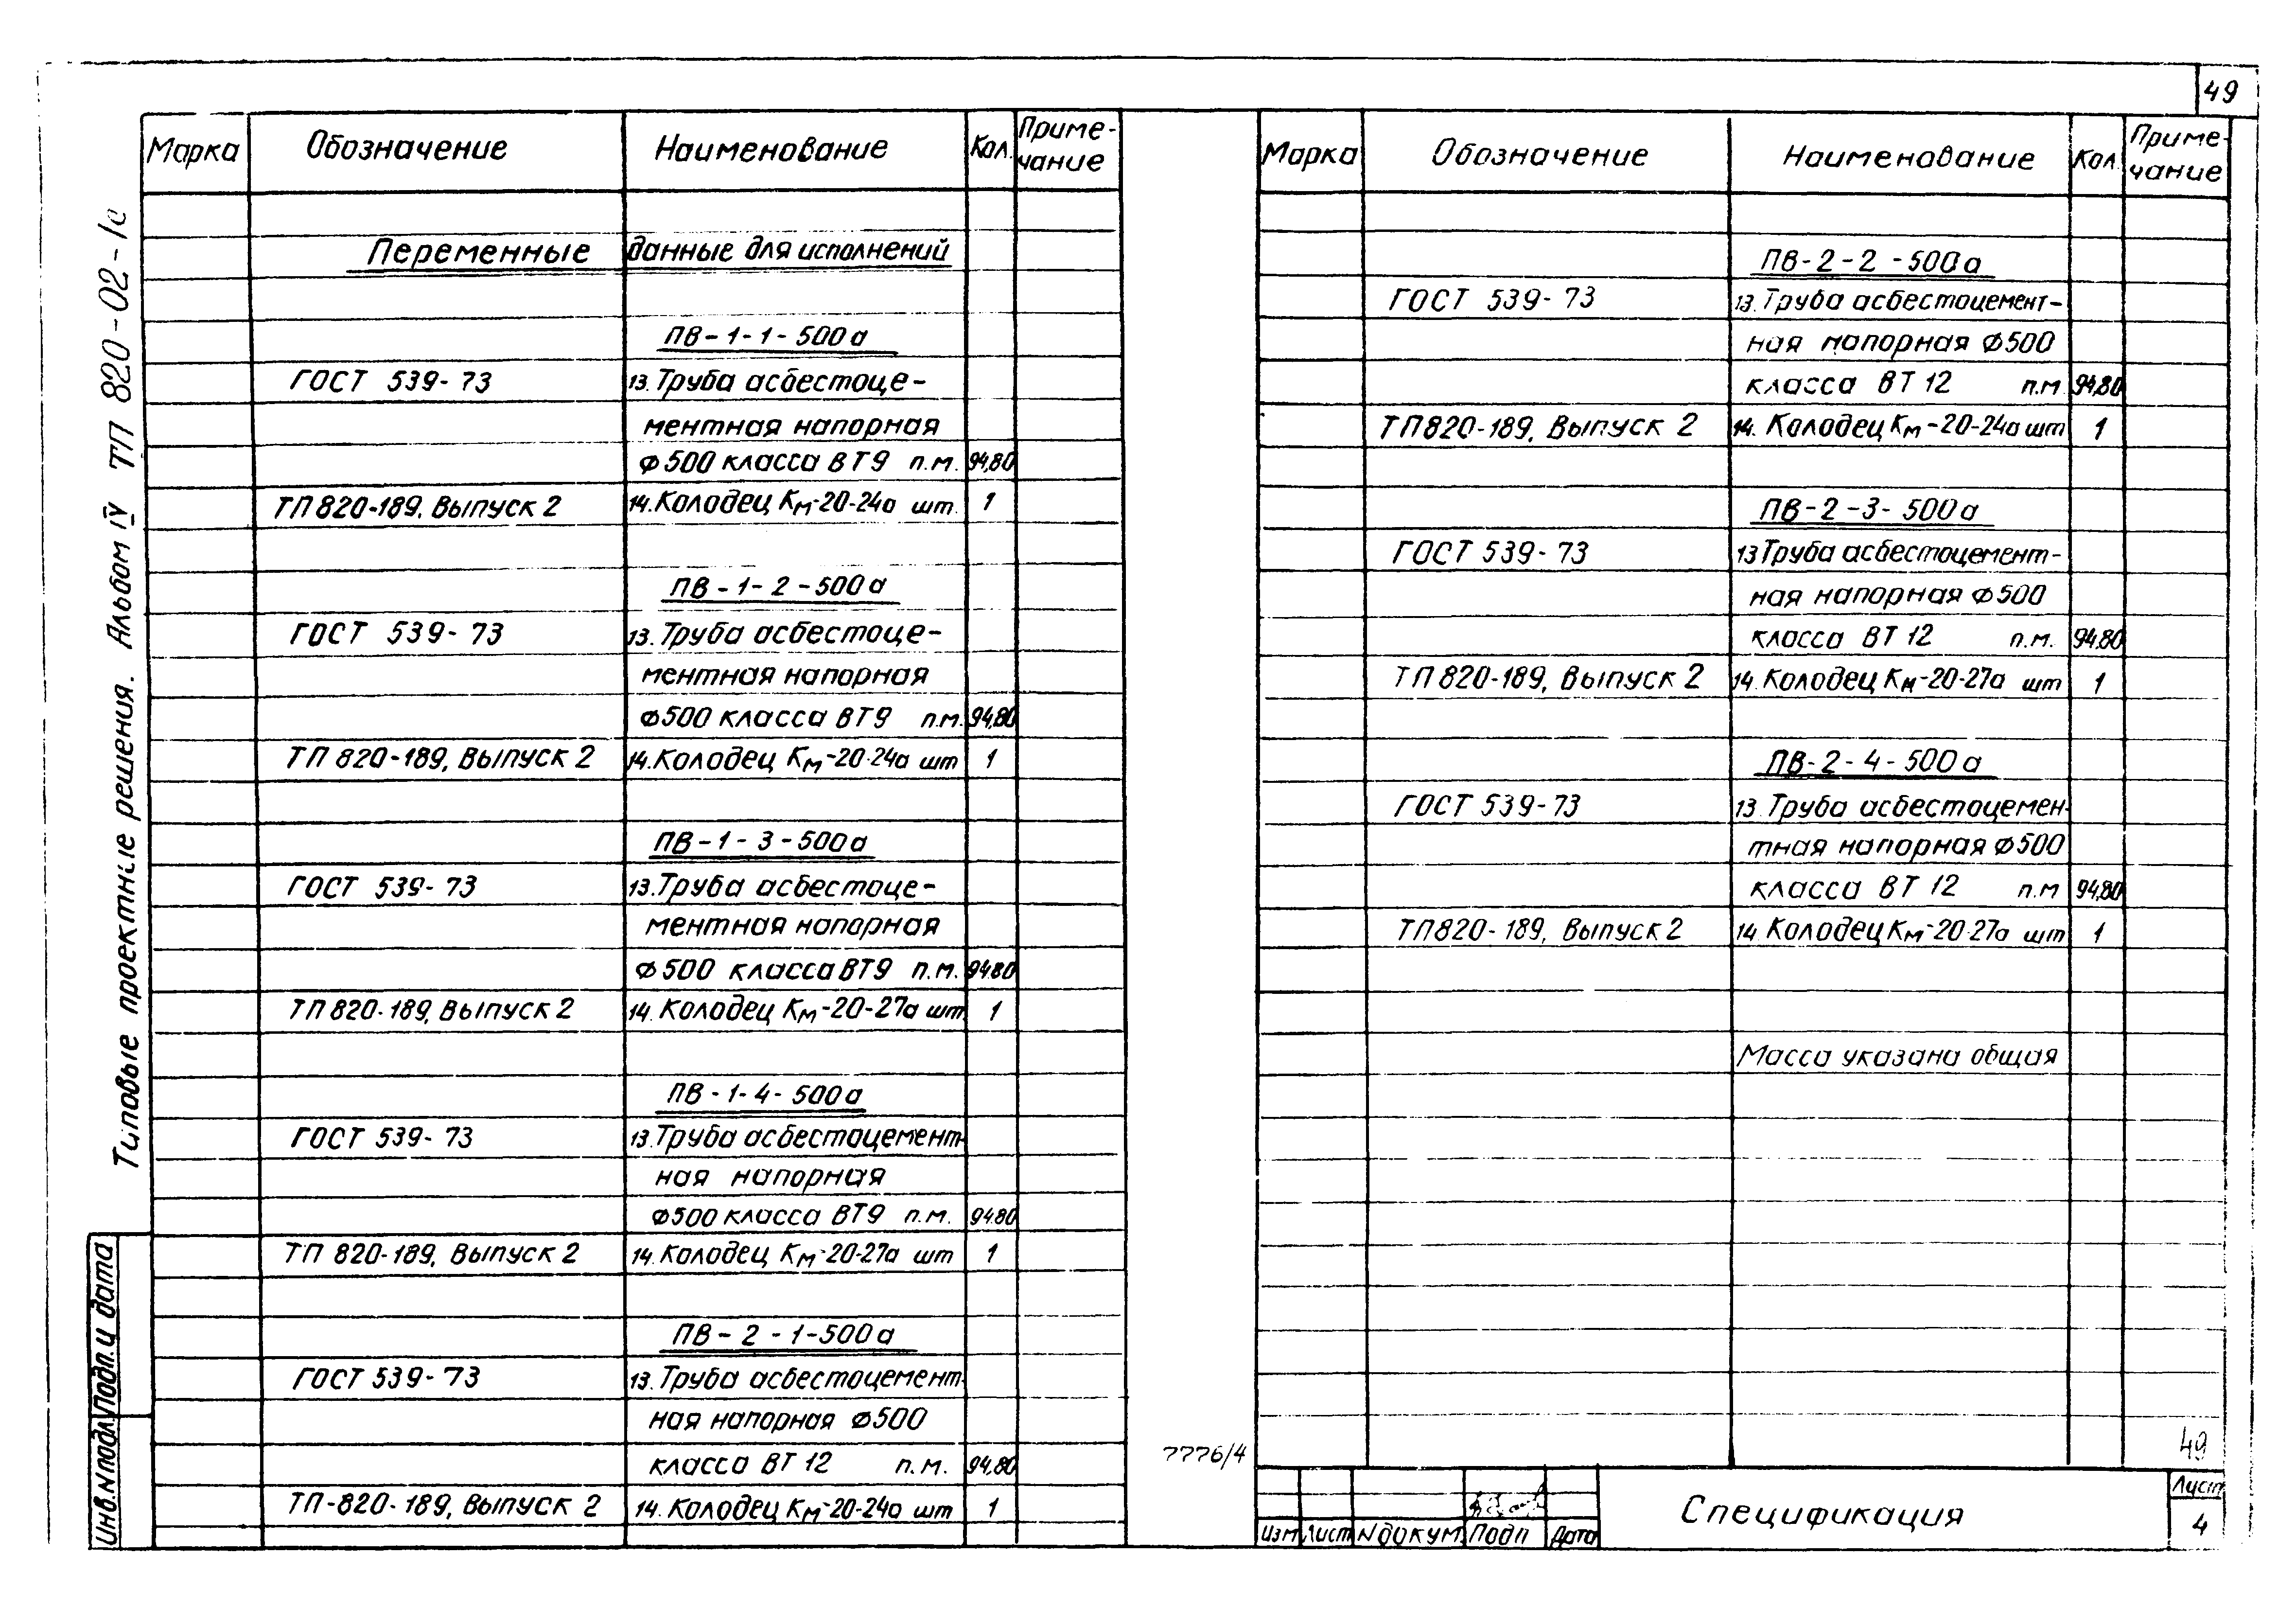 49
Типовые проектные решения. Альбом IV ТП 820-02-1с
Марка Обозначение Наименование Кол. Приме-
чание
Переменные данные для исполнений
ПВ-1-1-500а
ГОСТ 539-73 13. Труба асбестоце-
ментная напорная
Ф500 класса ВТ9 п.м. 94,80
ТП 820-189, Выпуск 2 14. Колодец Км-20-24а шт. 1
ПВ-1-2-500а
ГОСТ 539-73 13. Труба асбестоце-
ментная напорная
Ф500 класса ВТ9 п.м. 94,80
ТП 820-189, Выпуск 2 14. Колодец Км-20-24а шт 1
ПВ-1-3-500а
ГОСТ 539-73 13. Труба асбестоце-
ментная напорная
Ф500 класса ВТ9 п.м. 94.80
ТП 820-189, Выпуск 2 14. Колодец Км-20-27а шт 1
ПВ-1-4-500а
ГОСТ 539-73 13. Труба асбестоцемент-
ная напорная
Ф500 класса ВТ9 п.м. 94.80
ТП 820-189, Выпуск 2 14. Колодец Км-20-27а шт 1
ПВ-2-1-500а
ГОСТ 539-73 13. Труба асбестоцемент-
ная напорная Ф500
класса ВТ 12 п.м. 94,80
ТП-820-189, Выпуск 2 14. Колодец Км-20-24а шт 1
Инв.N подл. Подп. и дата
Марка Обозначение Наименование Кол. Приме-
чание
ПВ-2-2-500а
ГОСТ 539-73 13. Труба асбестоцемент-
ная напорная Ф500
класса ВТ 12 п.м 94,80
ТП 820-189, Выпуск 2 14. Колодец Км-20-24а шт 1
ПВ-2-3-500а
ГОСТ 539-73 13 Труба асбестоцемент-
ная напорная Ф500
класса ВТ 12 п.м. 94,80
ТП 820-189, Выпуск 2 14. Колодец Км-20-27а шт 1
ПВ-2-4-500а
ГОСТ 539-73 13. Труба асбестоцемен-
тная напорная Ф500
класса ВТ 12 п.м 94,80
ТП 820-189, Выпуск 2 14. Колодец Км-20-27а шт 1
Масса указана общая
49
7776/4
Изм Лист N докум. Подп Дата
Спецификация
Лист
4